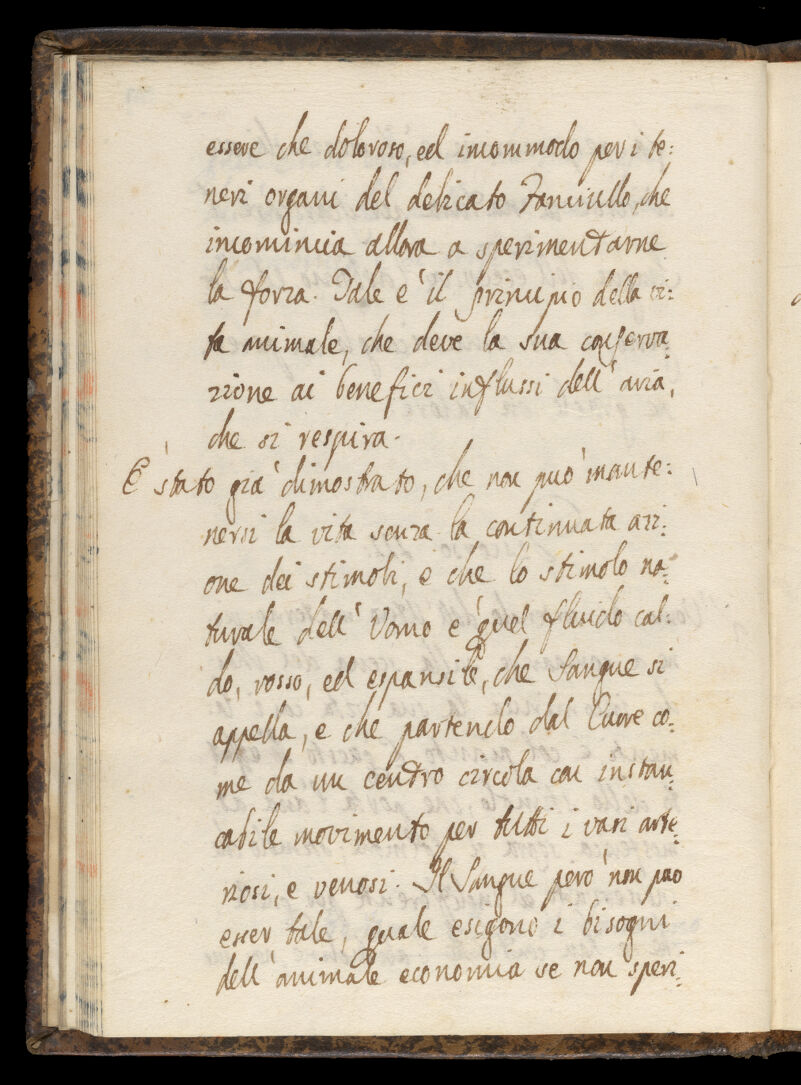 essere che doloroso, ed incommodo per i te:
neri organi del delicato Fanciullo, che
incomincia allora a sperimentarne
la forza. Tale e' il principio della vi:
ta animale, che deve la sua conserva:
zione ai benefici influssi dell' aria,
che si respira.
E' stato gia' dimostrato, che non puo' mante:
nersi la vita senza la continuata azi:
one dei stimoli, e che lo stimolo na:
turale dell' Uomo e' quel fluido cal:
do, rosso, ed espansile, che Sangue si
appella, e che partendo dal Cuore co:
me da un centro circola con instan:
cabile movimento per tutti i vasi arte:
riosi, e venosi. Il Sangue pero' non puo
esser tale, quale esigono i bisogni
dell' animale economia se non speri: